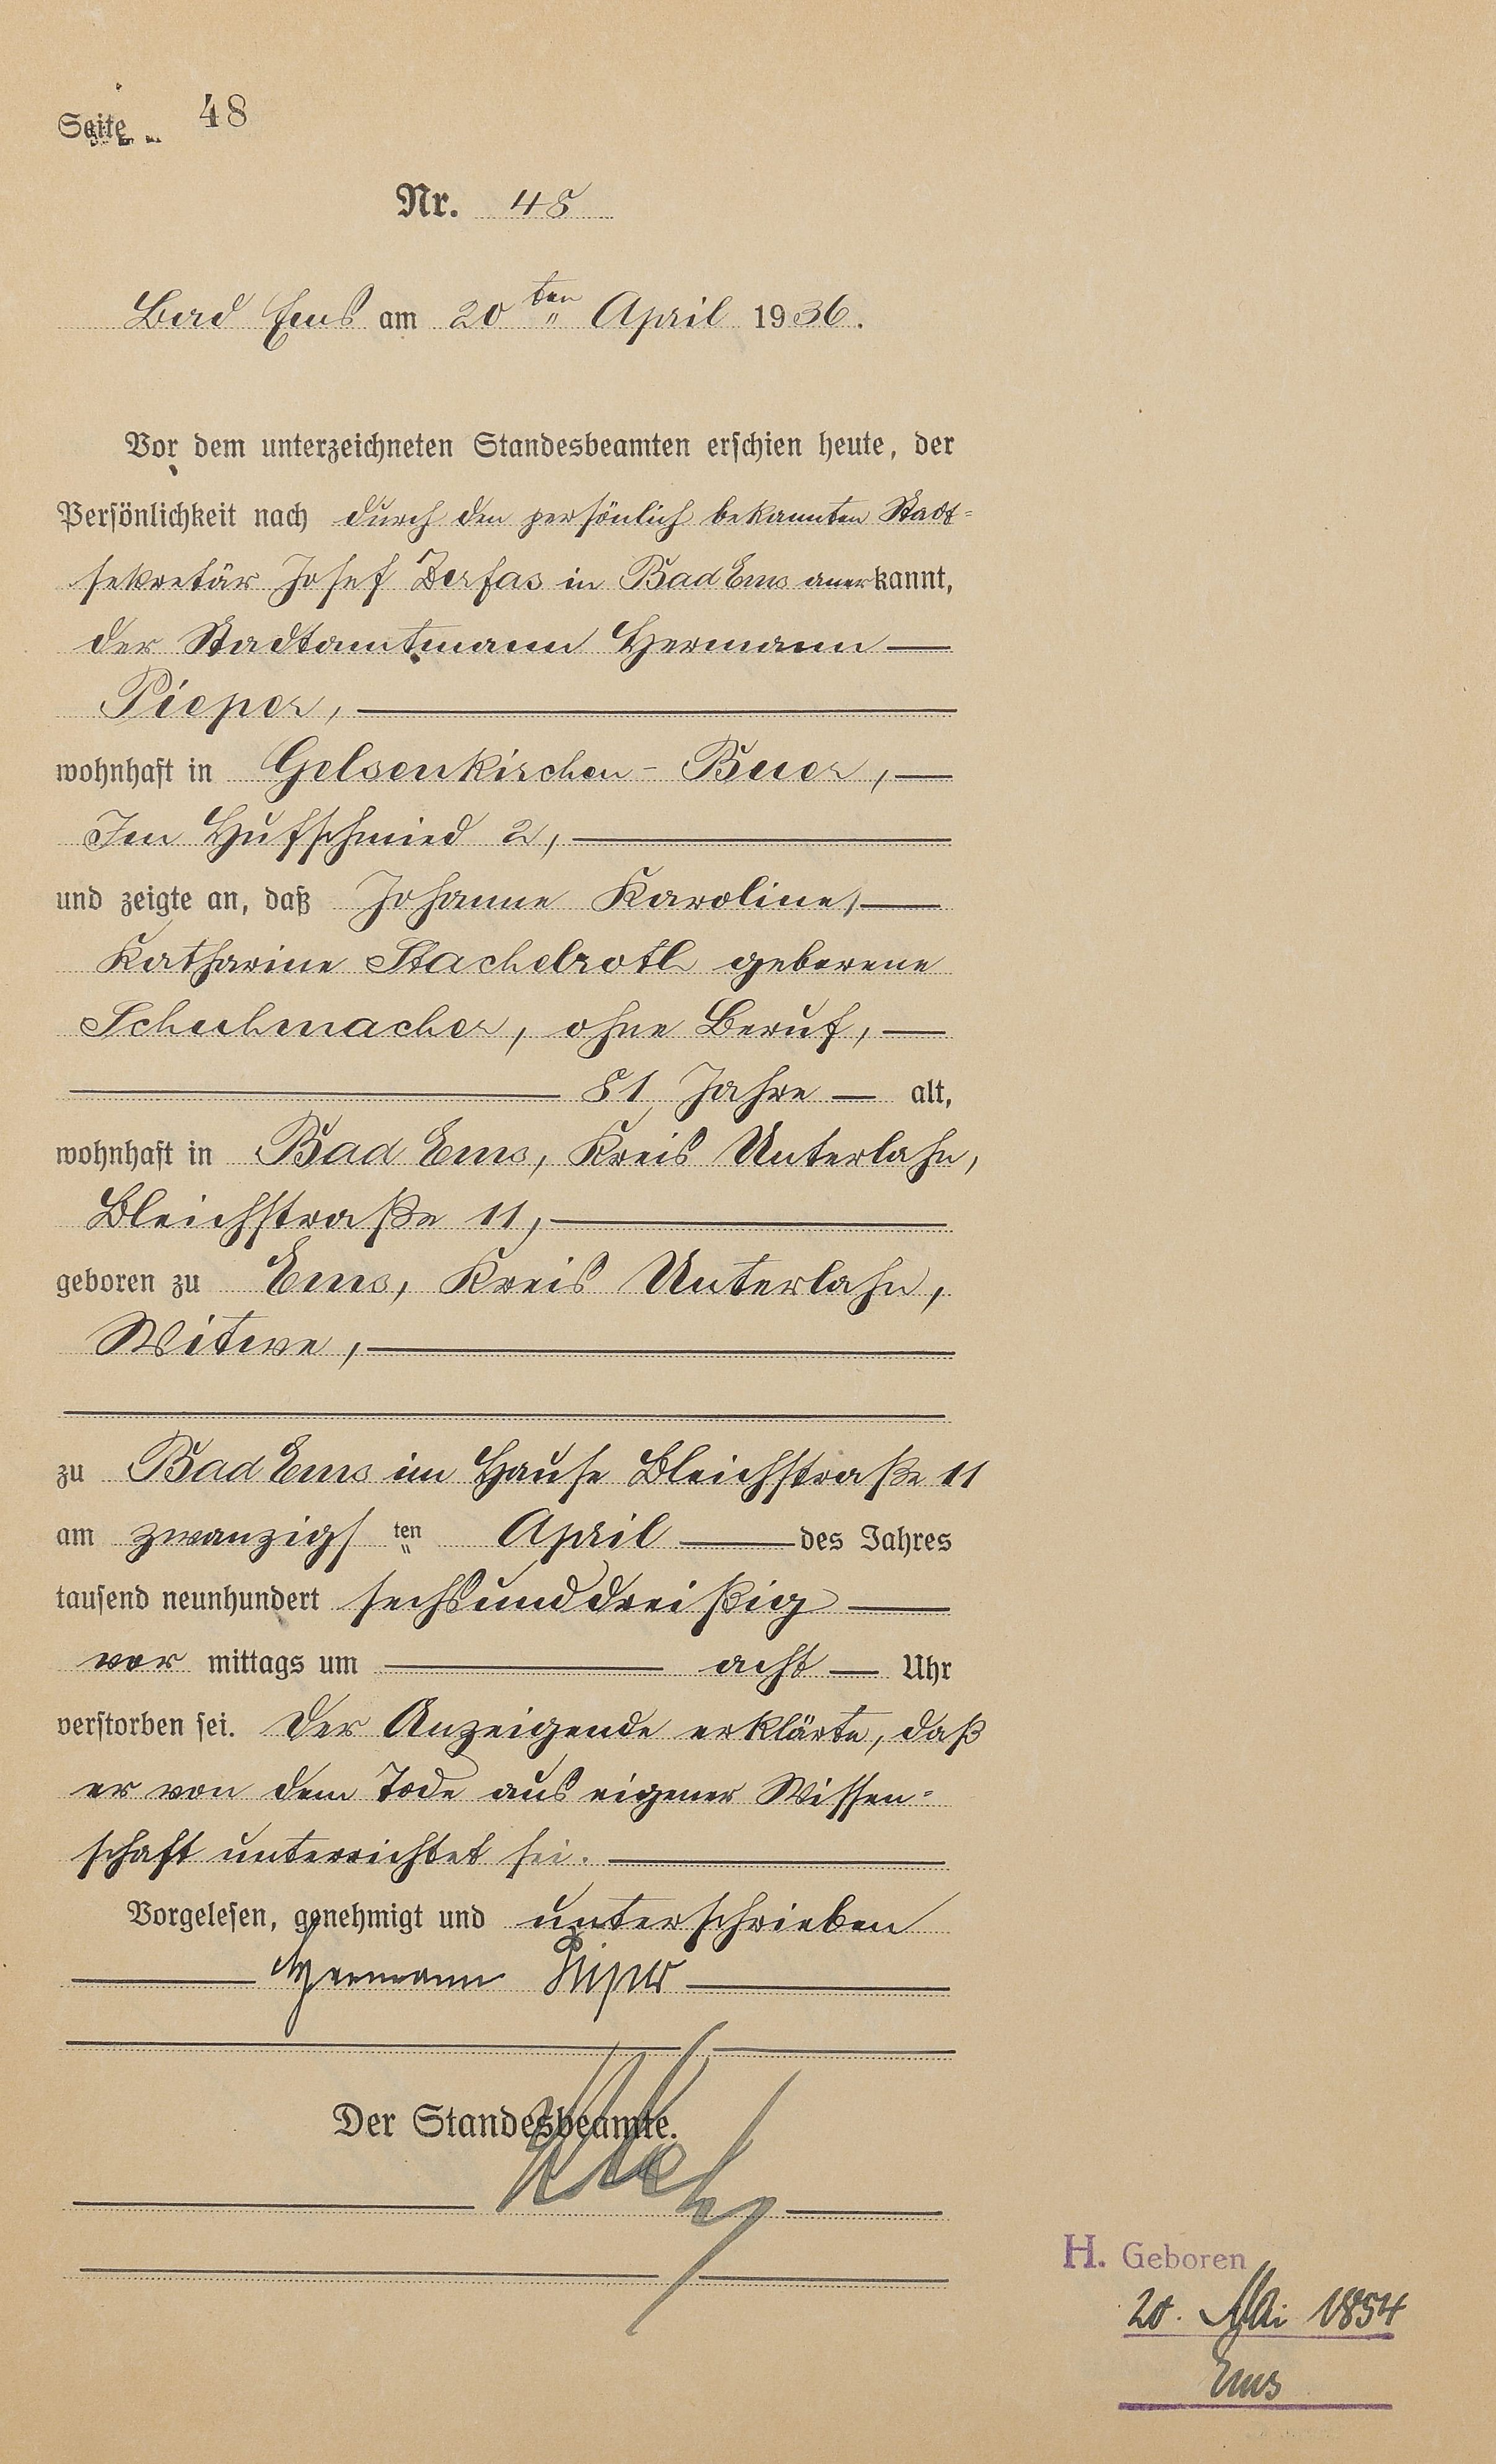 Seite 48
Nr. 48
Bad Ems am 20ten April 1936.
Vor dem unterzeichneten Standesbeamten erschien heute, der
Persönlichkeit nach durch den persönlich bekannten Stadt=
sekretär Josef Zerfas in Bad Ems anerkannt,
der Stadtamtmann Hermann
Pieper,
wohnhaft in Gelsenkirchen-Buer,
Im Hufschmied 2,
und zeigte an, daß Johanne Karoline,
Katharine Stachelroth geborene
Schuhmacher, ohne Beruf,
81 Jahre alt,
wohnhaft in Bad Ems, Kreis Unterlahn,
Bleichstraße 11,
geboren zu Ems, Kreis Unterlahn,
Witwe,
zu Bad Ems im Hause Bleichstraße 11
am zwanzigsten April des Jahres
tausend neunhundert sechsunddreißig
vor mittags um acht Uhr
verstorben sei. Der Anzeigende erklärte, daß
er von dem Tode aus eigener Wissen=
schaft unterrichtet sei.
Vorgelesen, genehmigt und unterschrieben
Hermann Pieper
Der Standesbeamte.
H. Geboren
20. Mai 1854
Ems